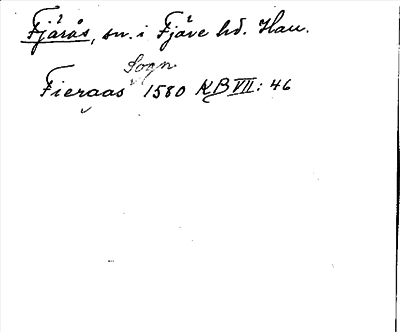 Fjärås, sn. i Fjäre hd. Hall.
Sogn
Fieraas 1580 KB VII: 46